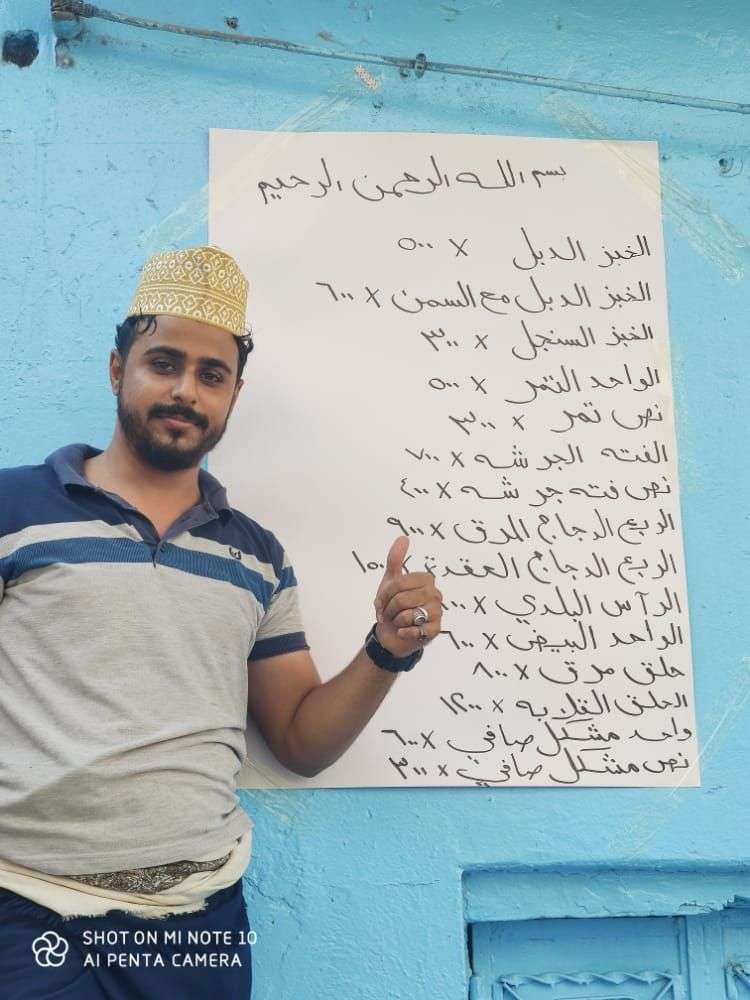 بسم الله الرحمن الرحيم
الخبز الدبل x ٥٠٠
الخبز الدبل مع السمن x ٦٠٠
الخبز السنجل x ٣٠٠
الواحد التمر x ٥٠٠
نص تمر x ٣٠٠
الفته الجرشه x ٧٠٠
نص فته جرشه x ٤٠٠
الربع الدجاج المرق x ٩٠٠
الربع الدجاج العقدة x
الرآس البلدي x
الواحد البيض x ٦٠٠
حلق مرق x ٨٠٠
الحلق القلابه x ١٢٠٠
واحد مشكل صافي x ٦٠٠
نص مشكل صافي x ٣٠٠
SHOT ON MI NOTE 10
AI PENTA CAMERA